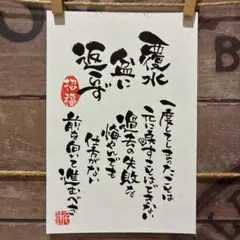 覆水
盆に
返らず
招福
一度してしまったことは
元に戻すことはできない
過去の失敗を
悔やんでも
仕方がない
前を向いて進むべき